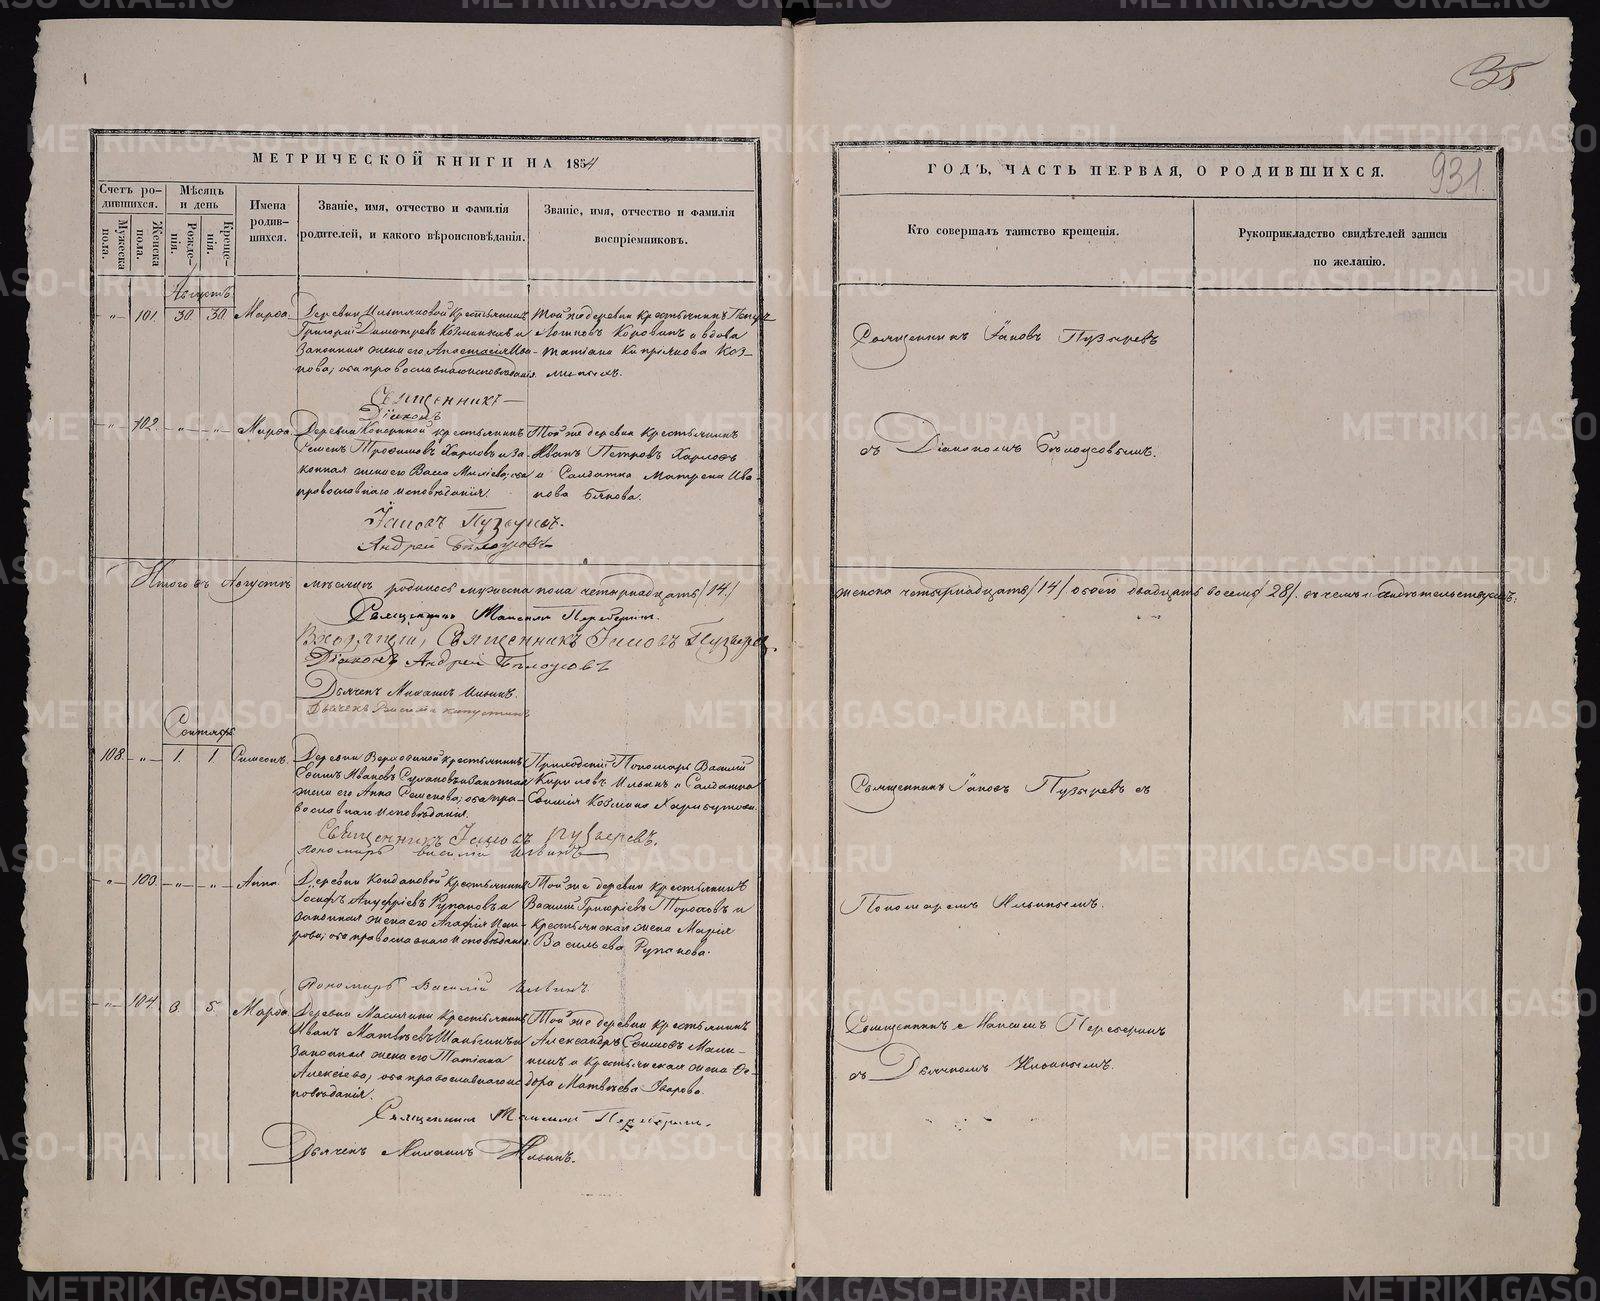 35
МЕТРИЧЕСКОЙ КНИГИ НА 1854
ГОДЪ, ЧАСТЬ ПЕРВАЯ, О РОДИВШИХСЯ.
931.
Счетъ ро-
дившихся.
Мужеска
пола.
Женска
пола.
Мѣсяцъ
и день
Рожде-
нія.
Креще-
нія.
Имена
родив-
шихся.
Званіе, имя, отчество и фамилія
родителей, и какого вѣроисповѣданія.
Званіе, имя, отчество и фамилія
воспріемниковъ.
Кто совершалъ таинство крещенія.
Рукоприкладство свидѣтелей записи
по желанію.
Августъ
101. 30. 30. Марѳа.
Деревни крестьянинъ
Григорій Димитріевъ и
законная жена его Анастасія Ива-
нова, оба православнаго исповѣданія.
Той же деревни крестьянинъ Петръ
Логиновъ Коровинъ и вдова
Татіана Кипріянова Коз-
миныхъ.
Священникъ Іаковъ Пузыревъ
Священникъ
Діаконъ
102. Марѳа.
Деревни крестьянинъ
Семенъ Трофимовъ Харловъ и за-
конная жена его Васса оба
православнаго исповѣданія.
Той же деревни крестьянинъ
Иванъ Петровъ Харловъ
и Солдатка Матрена Ива-
нова
съ Діакономъ Бѣлоусовымъ.
Іаковъ Пузыревъ.
Андрей Бѣлоусовъ
Итого въ Августѣ мѣсяцѣ родилось мужеска пола четырнадцать /14/
женска четырнадцать /14/ обоего двадцать восемь /28/ въ чемъ и свидѣтельствуемъ:
Священникъ Максимъ
Священникъ Іаковъ Пузыревъ.
Діаконъ Андрей Бѣлоусовъ
Дьячекъ Михаилъ Ильинъ.
Дьячекъ
Сентябрь
103. 1. 1. Симеонъ.
Деревни крестьянинъ
Ефимъ Ивановъ и законная
жена его Анна Семенова, оба пра-
вославнаго исповѣданія.
Приходскій Пономарь Василій
Кириловъ Ильинъ и Солдатка
Козмина
Священникъ Іаковъ Пузыревъ съ
Священникъ Іаковъ Пузыревъ.
Пономарь Василій Ильинъ
103. Анна.
Деревни крестьянинъ
Іосифъ Ануфріевъ Рупановъ и
законная жена его Агафія Пет-
рова, оба православнаго исповѣданія.
Той же деревни крестьянинъ
Василій Григорьевъ и
крестьянская жена Марія
Васильева Рупанова.
Пономаремъ Ильинымъ.
Пономарь Василій Ильинъ.
104. 3. 5. Марѳа.
Деревни крестьянинъ
Иванъ Матвѣевъ и
законная жена его Татіана
Алексіева, оба православнаго ис-
повѣданія.
Той же деревни крестьянинъ
Александръ Ефимовъ Мали-
нинъ и крестьянская жена Ѳе-
дора Матвѣева
Священникъ Максимъ
съ Дьячкомъ Ильинымъ.
Священникъ Максимъ
Дьячекъ Михаилъ Ильинъ.
METRIKI.GASO-URAL.RU